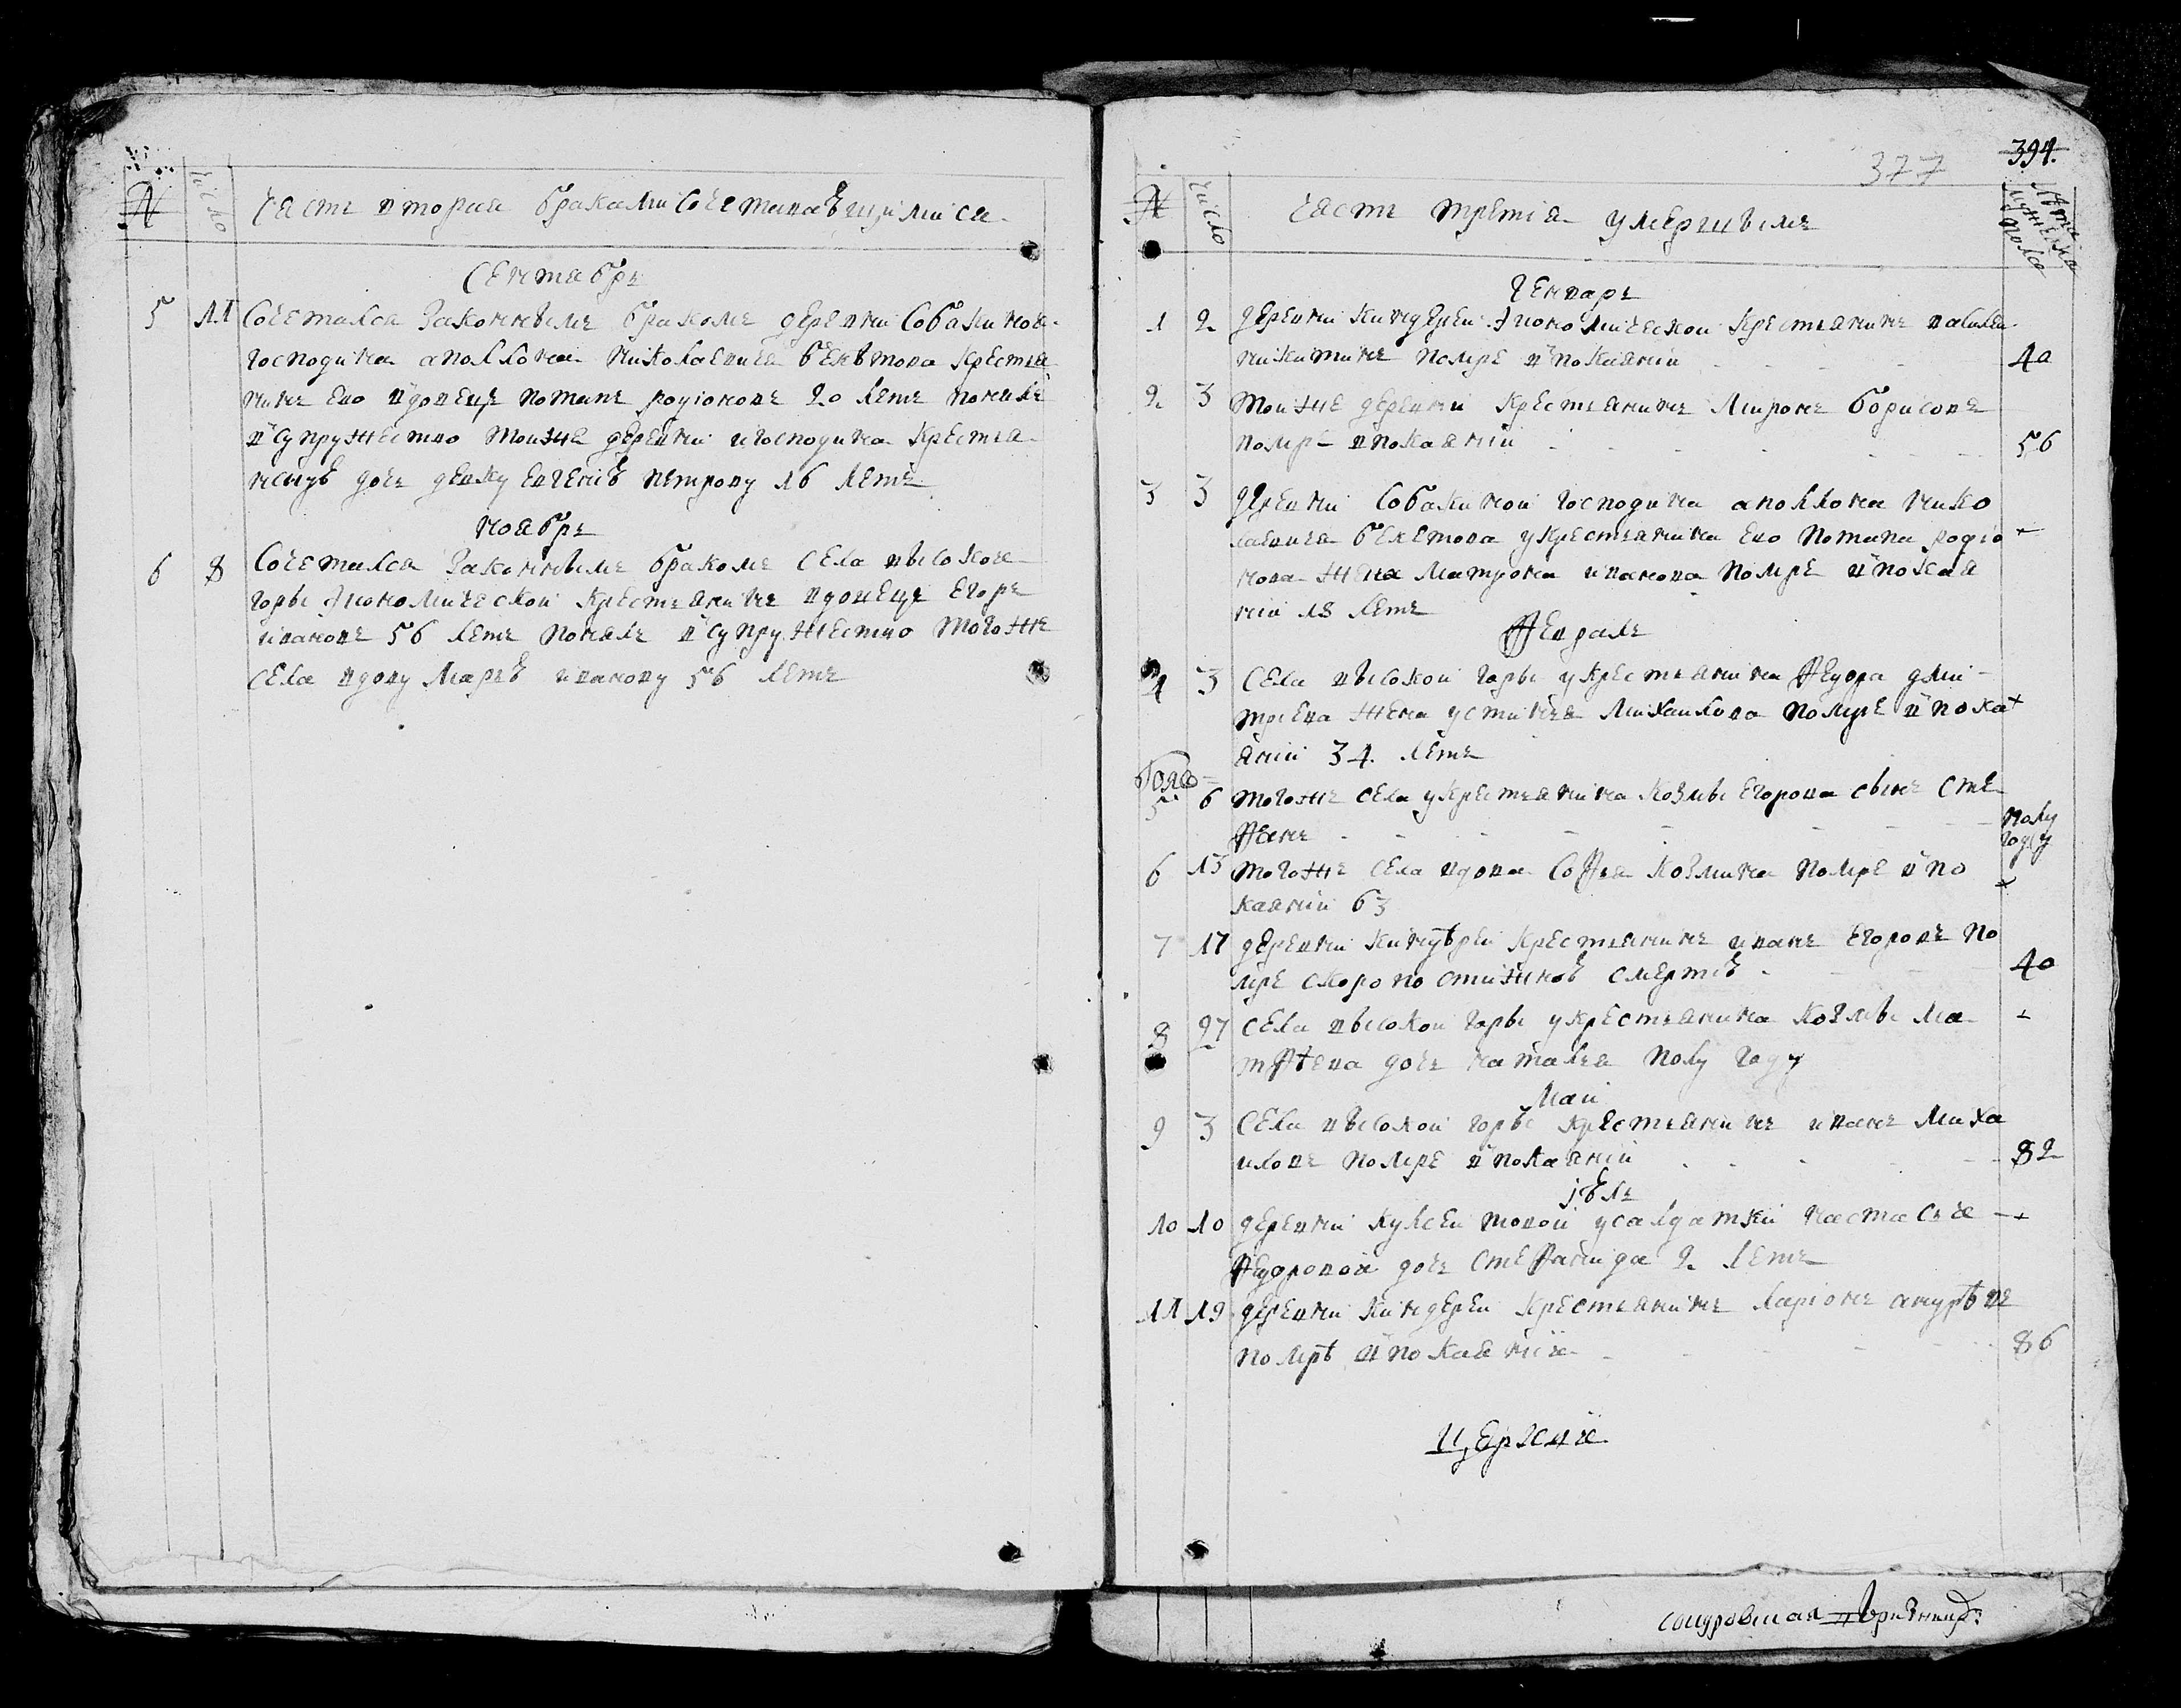 № число Часть вторая бракамисочетавъшимися
Сентябрь
5 11 Сочетался законнымъ бракомъ деревни Собакиной
господина аполлона николаевича бекѣтова крестья
нинъ ево вдовецъ потапъ родіоновъ 20 летъ понялъ
в супружество тоиже деревни игосподина крестья
нсиу дочь девку евгенію петрову 16 летъ
ноябрь
6 8 Сочетался законнымъ бракомъ села высокои
горы экономической крестьянинъ вдовецъ Егоръ
ивановъ 56 летъ понялъ в супружество тогоже
села вдову марью иванову 56 летъ
377 394.
№ число Часть третія умершымъ Лѣта мужеска пола
Генварь
1 2 деревни киндерей экономической крестьянинъ
никитинъ помре в покаяніи 40
2 3 тоиже деревни крестьянинъ Миронъ борисовъ
помре впокаяніи 56
3 3 деревни Собакиной господина аполлона нико
лаевича бекетова укрестьянина ево потапа родіо
нова жена матрона иванова помре в покая
ніи 18 летъ
Февраль
4 3 Села высокои горы укрестьянина Федора дми
триева жена устинья михаилова помре в пока
яніи 34. летъ
5 6 тогоже села укрестьянина козмы егорова сынъ сте
фанъ полу году
6 13 тогоже села вдова Софья козмина помре в по
каяніи 63
7 17 деревни киндѣреи крестьянинъ иванъ егоровъ по
мре скоро постижною смертію 40
8 27 Села высокои горы укрестьянина козмы ма
тфѣева дочь наталья полу году
Маи
9 3 Села высокои горы крестьянинъ иванъ миха
иловъ помре в покаяніи 82
іюль
10 10 деревни кулсеитовои усалдатки настасьи
Федоровои дочь стефанида 2 летъ
11 19 деревни киндереи крестьянинъ ларіонъ андрѣевъ
помрѣ в покаяніи 86
церкви